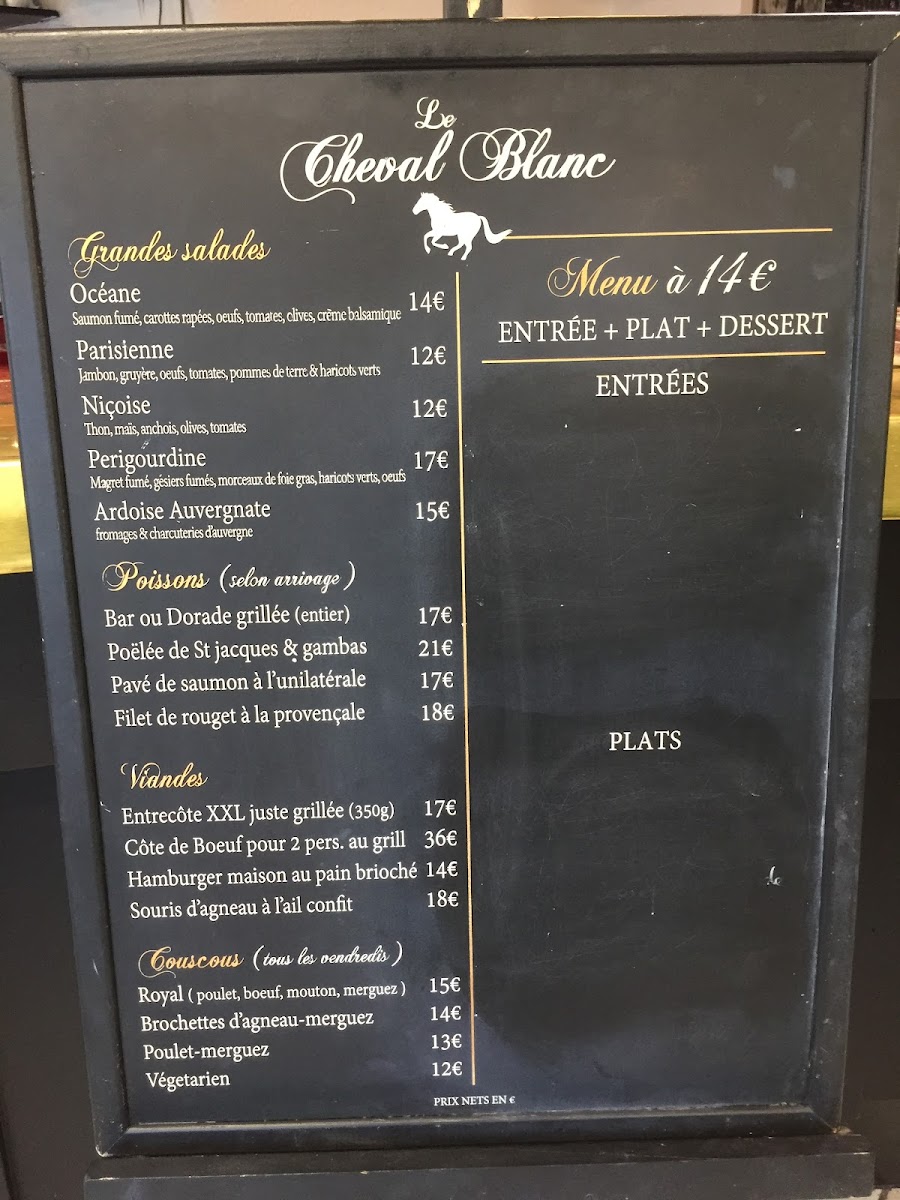 Le
Cheval Blanc
Grandes salades
Océane 14€
Saumon fumé, carottes rapées, oeufs, tomates, olives, crème balsamique
Parisienne 12€
Jambon, gruyère, oeufs, tomates, pommes de terre & haricots verts
Niçoise 12€
Thon, maïs, anchois, olives, tomates
Perigourdine 17€
Magret fumé, gésiers fumés, morceaux de foie gras, haricots verts, oeufs
Ardoise Auvergnate 15€
fromages & charcuteries d'auvergne
Poissons (selon arrivage)
Bar ou Dorade grillée (entier) 17€
Poëlée de St jacques & gambas 21€
Pavé de saumon à l'unilatérale 17€
Filet de rouget à la provençale 18€
Viandes
Entrecôte XXL juste grillée (350g) 17€
Côte de Boeuf pour 2 pers. au grill 36€
Hamburger maison au pain brioché 14€
Souris d'agneau à l'ail confit 18€
Couscous (tous les vendredis)
Royal ( poulet, boeuf, mouton, merguez ) 15€
Brochettes d'agneau-merguez 14€
Poulet-merguez 13€
Végetarien 12€
Menu à 14€
ENTRÉE + PLAT + DESSERT
ENTRÉES
PLATS
PRIX NETS EN €